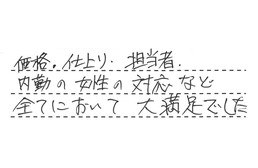 価格. 仕上り. 担当者.
内勤の女性の対応など
全てにおいて大満足でした